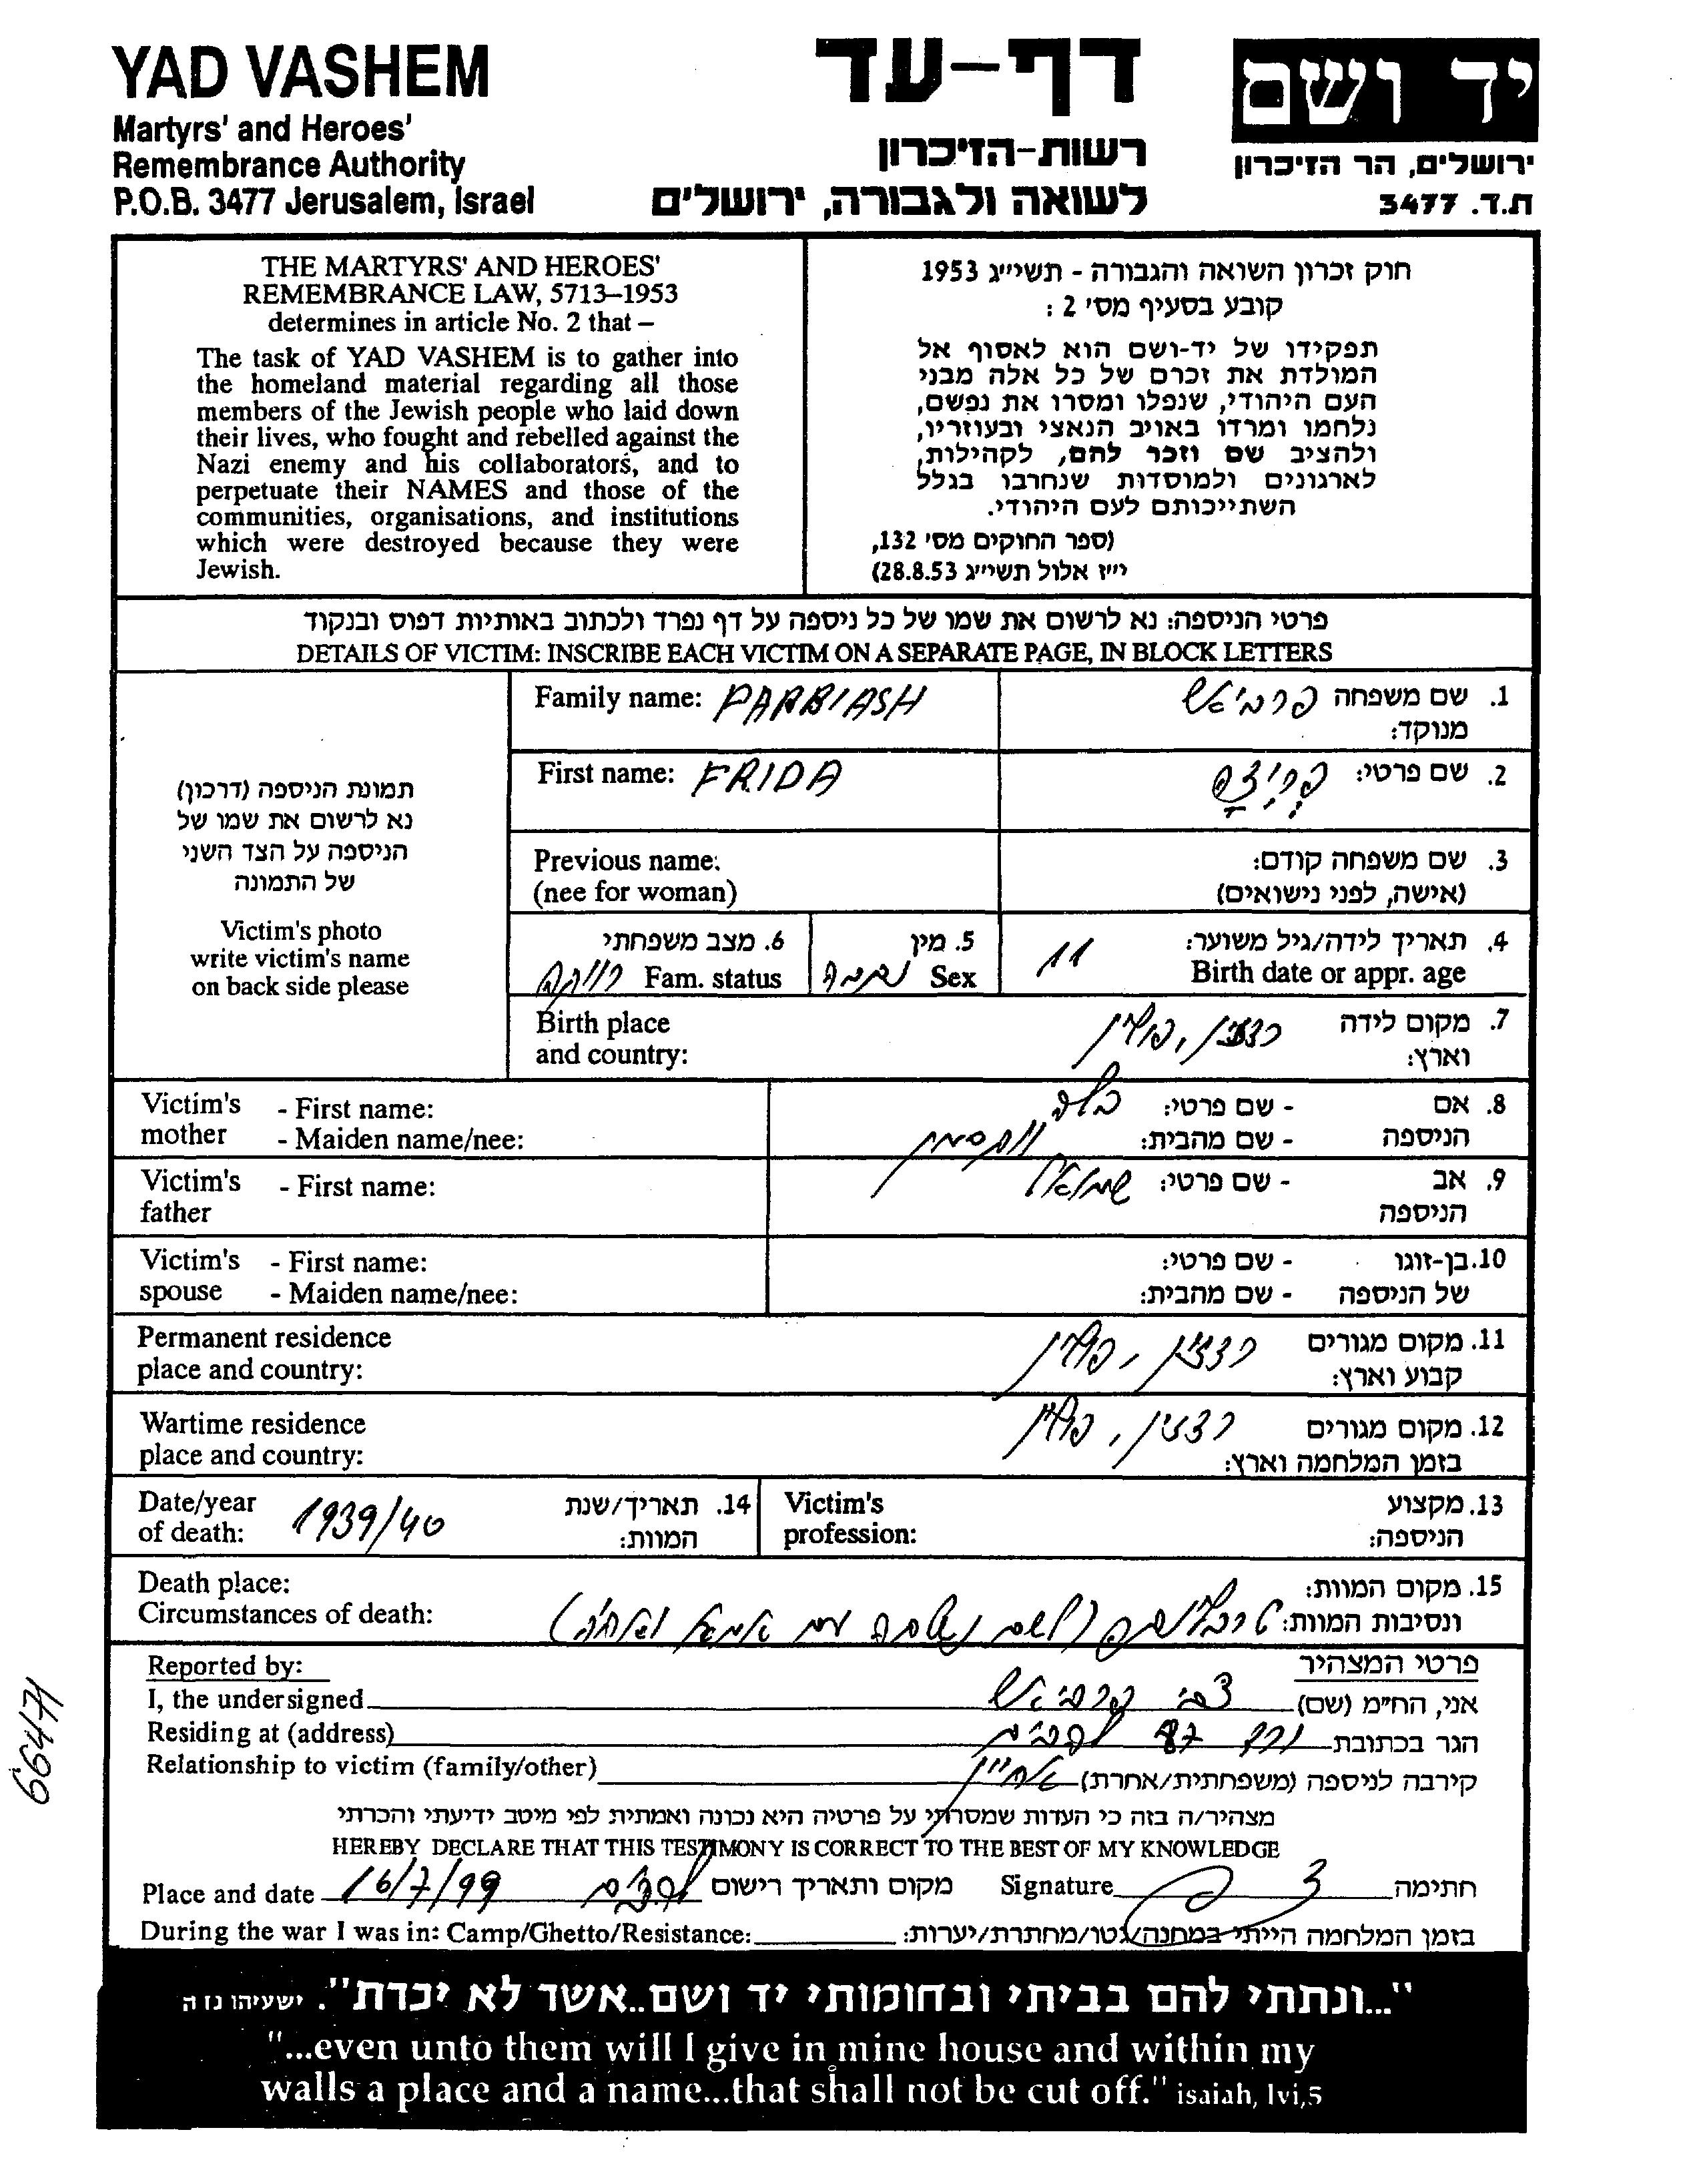 YAD VASHEM
Martyrs' and Heroes'
Remembrance Authority
P.O.B. 3477 Jerusalem, Israel
דף-עד
רשות-הזיכרון
לשואה ולגבורה, ירושלים
יד ושם
ירושלים, הר הזיכרון
ת.ד. 3477
THE MARTYRS' AND HEROES'
REMEMBRANCE LAW, 5713–1953
determines in article No. 2 that –
The task of YAD VASHEM is to gather into
the homeland material regarding all those
members of the Jewish people who laid down
their lives, who fought and rebelled against the
Nazi enemy and his collaborators, and to
perpetuate their NAMES and those of the
communities, organisations, and institutions
which were destroyed because they were
Jewish.
חוק זכרון השואה והגבורה - תשי״ג 1953
קובע בסעיף מס' 2 :
תפקידו של יד-ושם הוא לאסוף אל
המולדת את זכרם של כל אלה מבני
העם היהודי, שנפלו ומסרו את נפשם,
נלחמו ומרדו באויב הנאצי ובעוזריו,
ולהציב שם וזכר להם, לקהילות,
לארגונים ולמוסדות שנחרבו בגלל
השתייכותם לעם היהודי.
(ספר החוקים מס' 132,
י״ז אלול תשי״ג 28.8.53)
פרטי הניספה: נא לרשום את שמו של כל ניספה על דף נפרד ולכתוב באותיות דפוס ובנקוד
DETAILS OF VICTIM: INSCRIBE EACH VICTIM ON A SEPARATE PAGE, IN BLOCK LETTERS
תמונת הניספה (דרכון)
נא לרשום את שמו של
הניספה על הצד השני
של התמונה
Victim's photo
write victim's name
on back side please
Family name: PARBIASH
1. שם משפחה פרביאש
מנוקד:
First name: FRIDA
2. שם פרטי: פרידה
Previous name:
(nee for woman)
3. שם משפחה קודם:
(אישה, לפני נישואים)
6. מצב משפחתי
Fam. status רווקה
5. מין
Sex נקבה
4. תאריך לידה/גיל משוער:
Birth date or appr. age 11
Birth place
and country:
7. מקום לידה
וארץ:
רדזין, פולין
Victim's mother - First name:
- Maiden name/nee:
8. אם הניספה - שם פרטי:
- שם מהבית:
Victim's father - First name:
9. אב הניספה - שם פרטי: שמואל
Victim's spouse - First name:
- Maiden name/nee:
10. בן-זוגו של הניספה - שם פרטי:
- שם מהבית:
Permanent residence
place and country:
11. מקום מגורים
קבוע וארץ:
רדזין, פולין
Wartime residence
place and country:
12. מקום מגורים
בזמן המלחמה וארץ:
רדזין, פולין
Date/year
of death: 1939/40
14. תאריך/שנת
המוות:
Victim's
profession:
13. מקצוע
הניספה:
Death place:
Circumstances of death:
15. מקום המוות:
ונסיבות המוות: טרבלינקה (לשם נשלחה עם אמא ואחיה)
Reported by:
פרטי המצהיר
I, the undersigned
אני, החי״מ (שם) צבי פרביאש
Residing at (address)
הגר בכתובת 87
Relationship to victim (family/other)
קירבה לניספה (משפחתית/אחרת) אחיין
מצהיר/ה בזה כי העדות שמסרתי על פרטיה היא נכונה ואמתית לפי מיטב ידיעתי והכרתי
HEREBY DECLARE THAT THIS TESTIMONY IS CORRECT TO THE BEST OF MY KNOWLEDGE
Place and date 16/7/99
מקום ותאריך רישום
Signature
חתימה
During the war I was in: Camp/Ghetto/Resistance:
בזמן המלחמה הייתי במחנה/גטו/מחתרת/יערות:
66471
"...ונתתי להם בביתי ובחומותי יד ושם..אשר לא יכרת". ישעיהו נז ה
"...even unto them will I give in mine house and within my
walls a place and a name...that shall not be cut off." isaiah, lvi,5